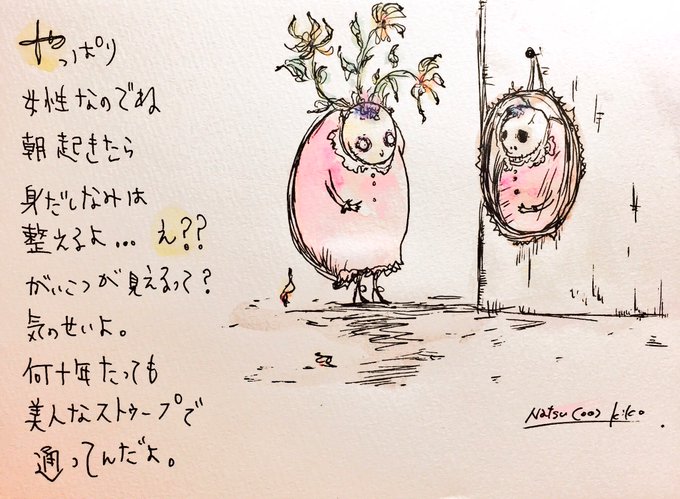 やっぱり
女性なのでね
朝起きたら
身だしなみは
整えるよ... え??
がいこつが見えるって?
気のせいよ。
何十年たっても
美人なストゥープで
通ってんだよ。
Natsu Coo) kiko.